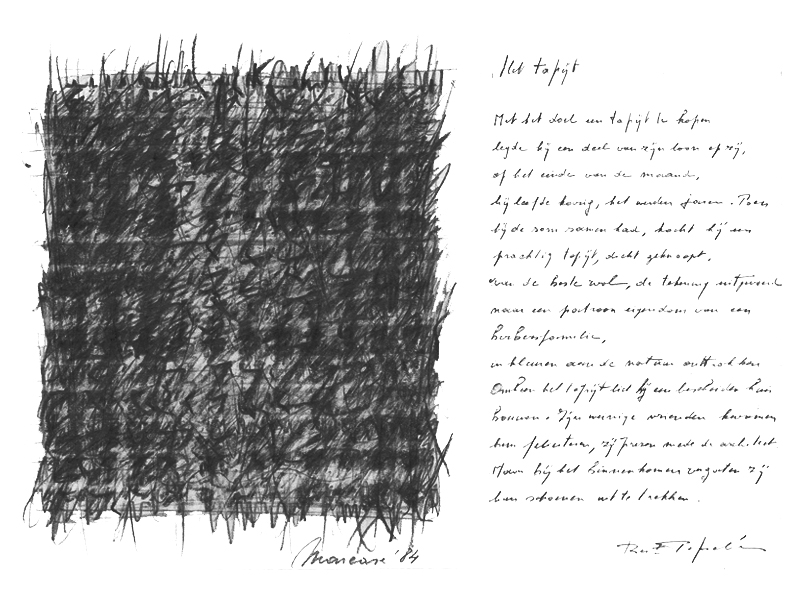 Het tapijt
Met het doel een tapijt te kopen
legde hij een deel van zijn loon opzij,
op het einde van de maand,
hij leefde karig, het werden jaren. Toen
hij de som samen had, kocht hij een
prachtig tapijt, dicht geknoopt,
van de beste wol, de tekening uitgevoerd
naar een patroon eigendom van een
berbersfamilie,
in kleuren aan de natuur onttrokken
Omheen het tapijt liet hij een bescheiden huis
bouwen. Zijn weinige vrienden kwamen
hem feliciteren, zij prezen mede de architect
Maar bij het binnenkomen vergaten zij
hun schoenen uit te trekken.
'84